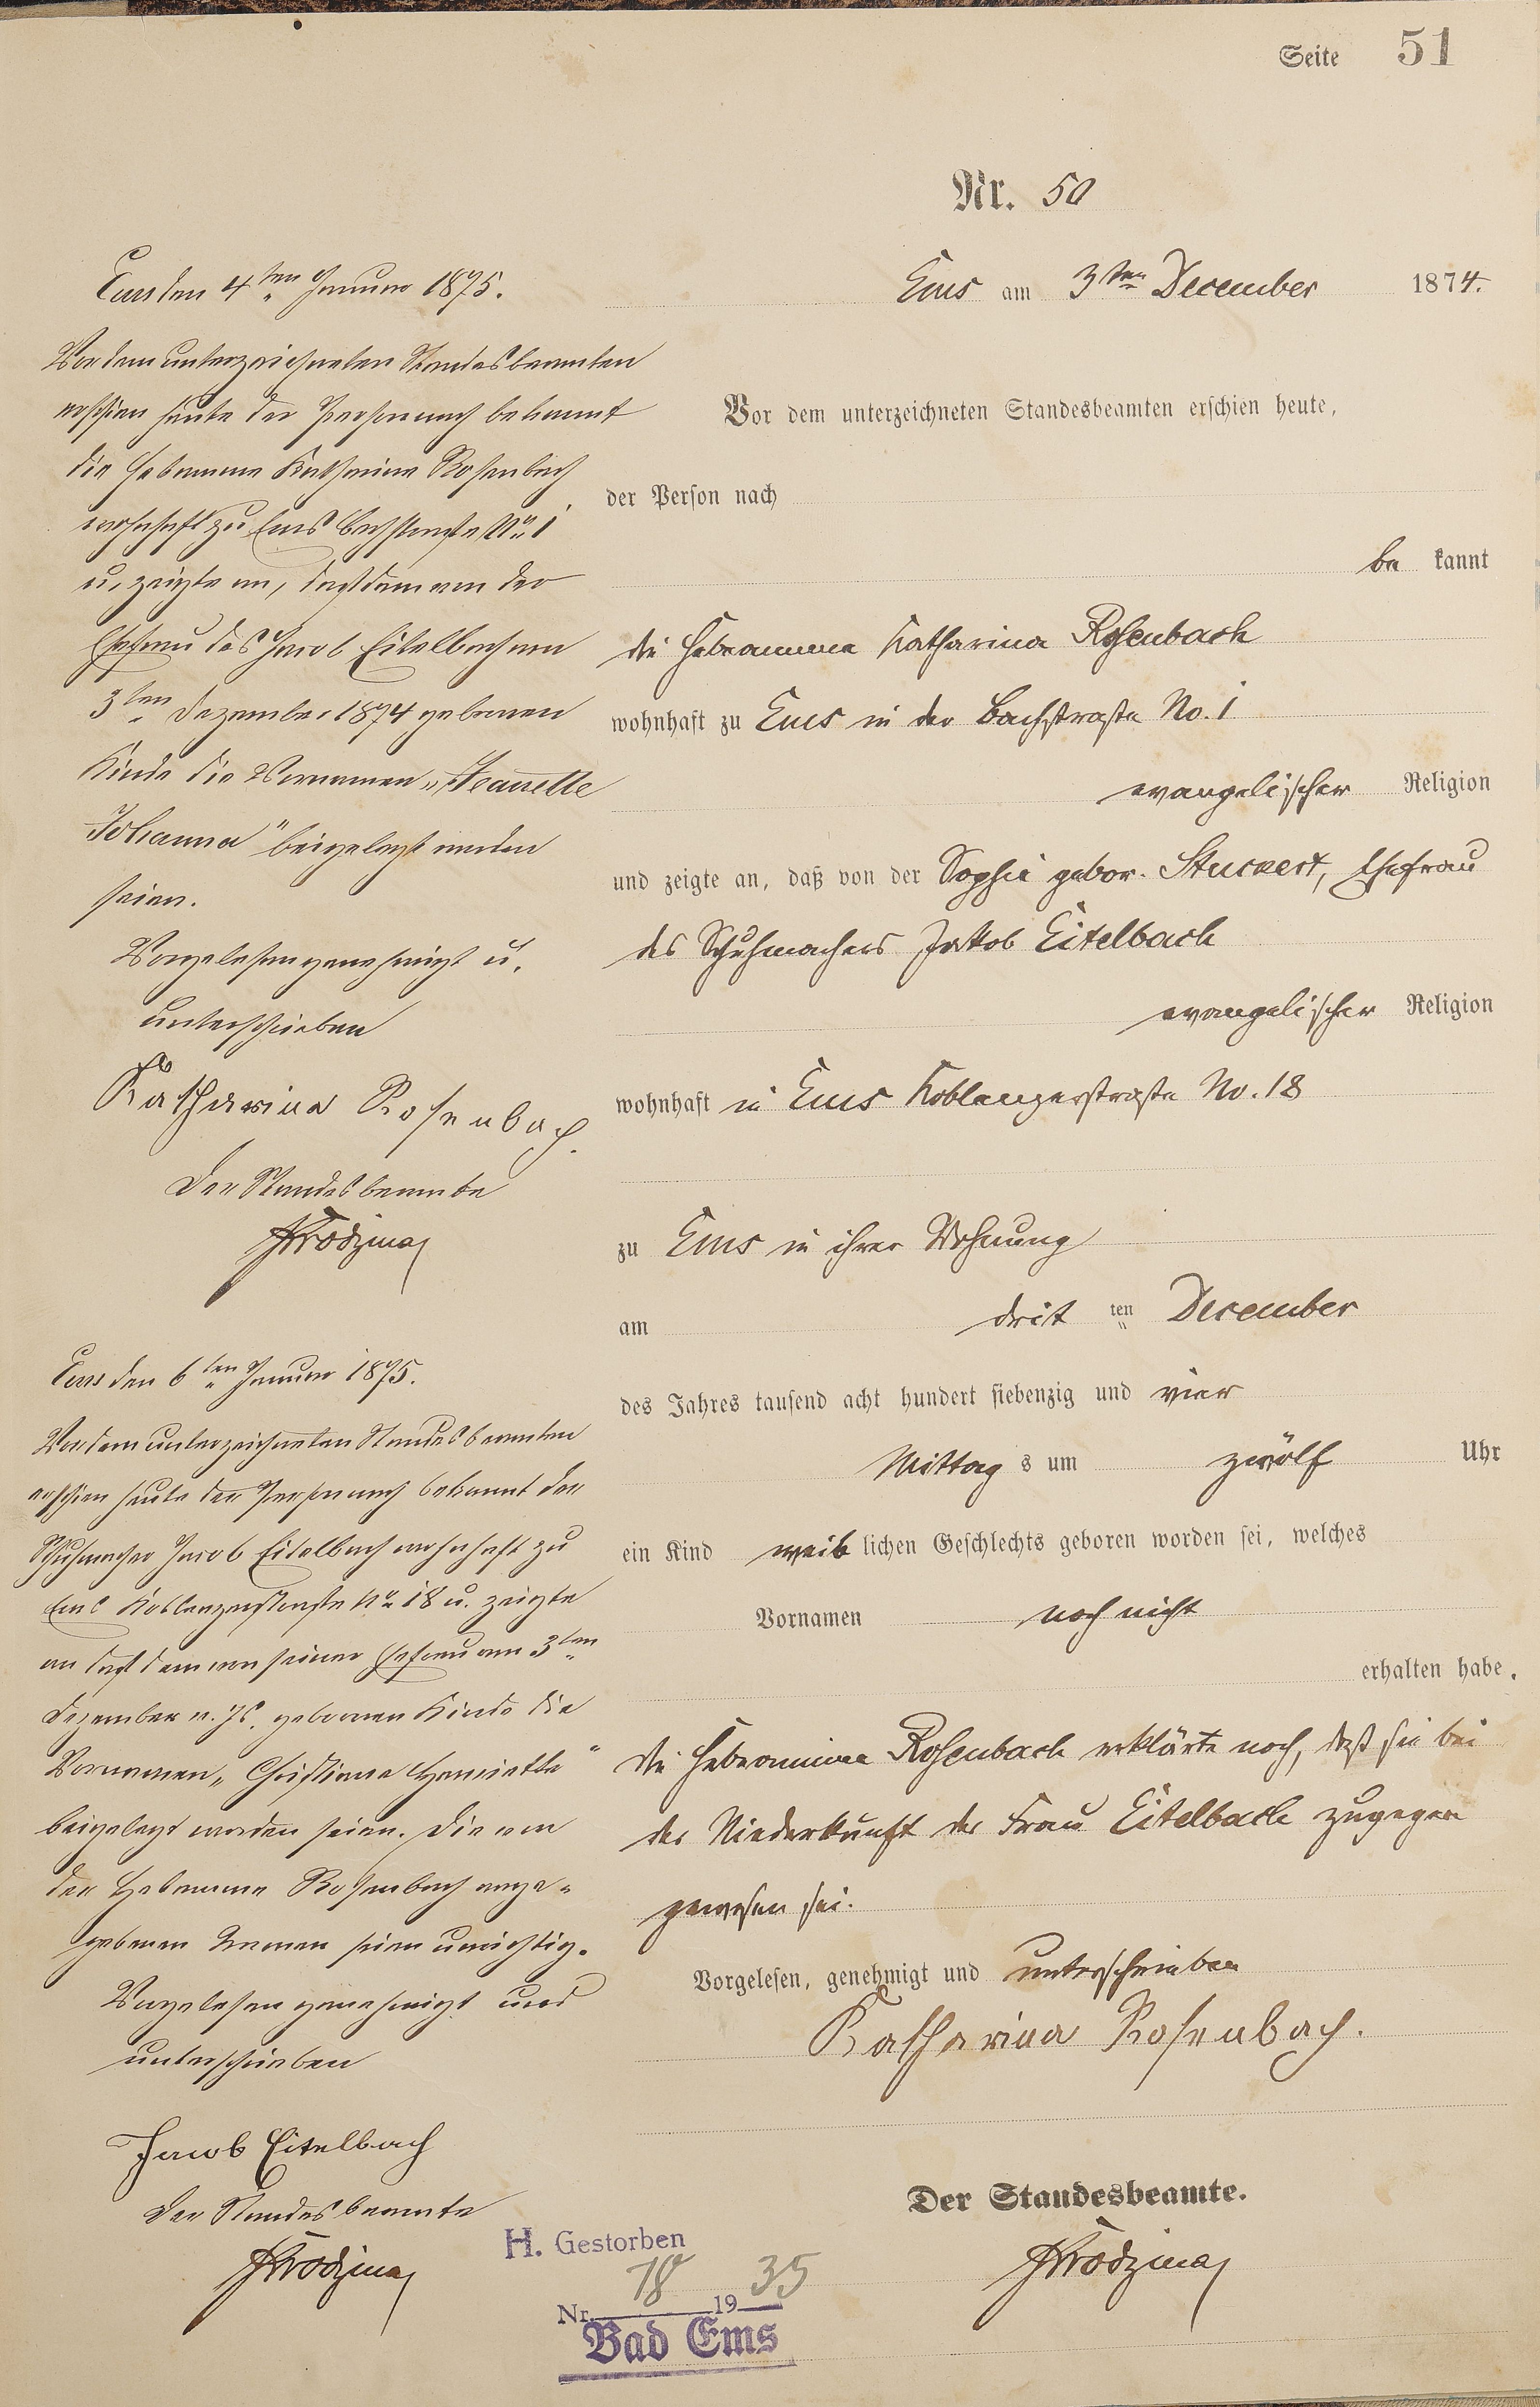 Seite 51
Nr. 50
Ems am 3ten December 1874.
Vor dem unterzeichneten Standesbeamten erschien heute,
der Person nach
be kannt
die Hebamme Katharina Rosenbach
wohnhaft zu Ems in der Bachstraße No. 1
evangelischer Religion
und zeigte an, daß von der Sophie gebor. Stuckert, Ehefrau
des Schuhmachers Jakob Eitelbach
evangelischer Religion
wohnhaft in Ems Koblenzerstraße No. 18
zu Ems in ihrer Wohnung
am drit ten December
des Jahres tausend acht hundert siebenzig und vier
Mittag s um zwölf Uhr
ein Kind weib lichen Geschlechts geboren worden sei, welches
Vornamen noch nicht
erhalten habe.
Die Hebamme Rosenbach erklärte noch, daß sie bei
der Niederkunft der Frau Eitelbach zugegen
gewesen sei.
Vorgelesen, genehmigt und unterschrieben
Katharina Rosenbach.
Der Standesbeamte.
Ems den 4ten Januar 1875.
Vor dem unterzeichneten Standesbeamten
erschien heute der Person nach bekannt
die Hebamme Katharina Rosenbach
wohnhaft zu Ems Bachstraße No 1
u. zeigte an, daß dem von der
Ehefrau des Jacob Eitelbach am
3ten Dezember 1874 geborenen
Kinde die Vornamen „Jeanette
Johanna" beigelegt worden
seien.
Vorgelesen genehmigt u.
unterschrieben
Katharina Rosenbach.
Der Standesbeamte
Ems den 6ten Januar 1875.
Vor dem unterzeichneten Standesbeamten
erschien heute der Person nach bekannt der
Schuhmacher Jacob Eitelbach wohnhaft zu
Ems Koblenzerstraße No 18 u. zeigte
an daß dem von seiner Ehefrau am 3ten
Dezember v. Js. geborenen Kinde die
Vornamen „Christiane Henriette"
beigelegt worden seien. Die von
der Hebamme Rosenbach ange-
gebenen Namen seien unrichtig.
Vorgelesen genehmigt und
unterschrieben
Jacob Eitelbach
Der Standesbeamte
H. Gestorben
Nr. 18 1935
Bad Ems